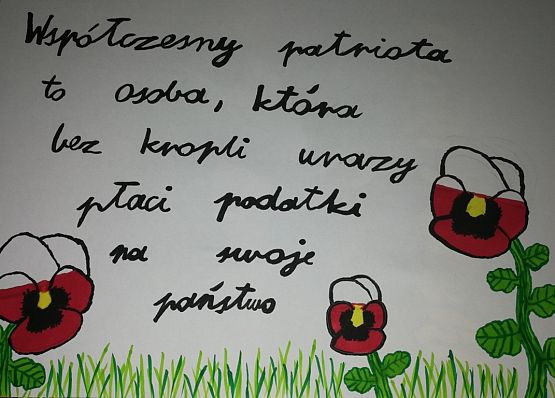 Współczesny patriota
to osoba, która
bez kropli urazy
płaci podatki
na swoje
państwo